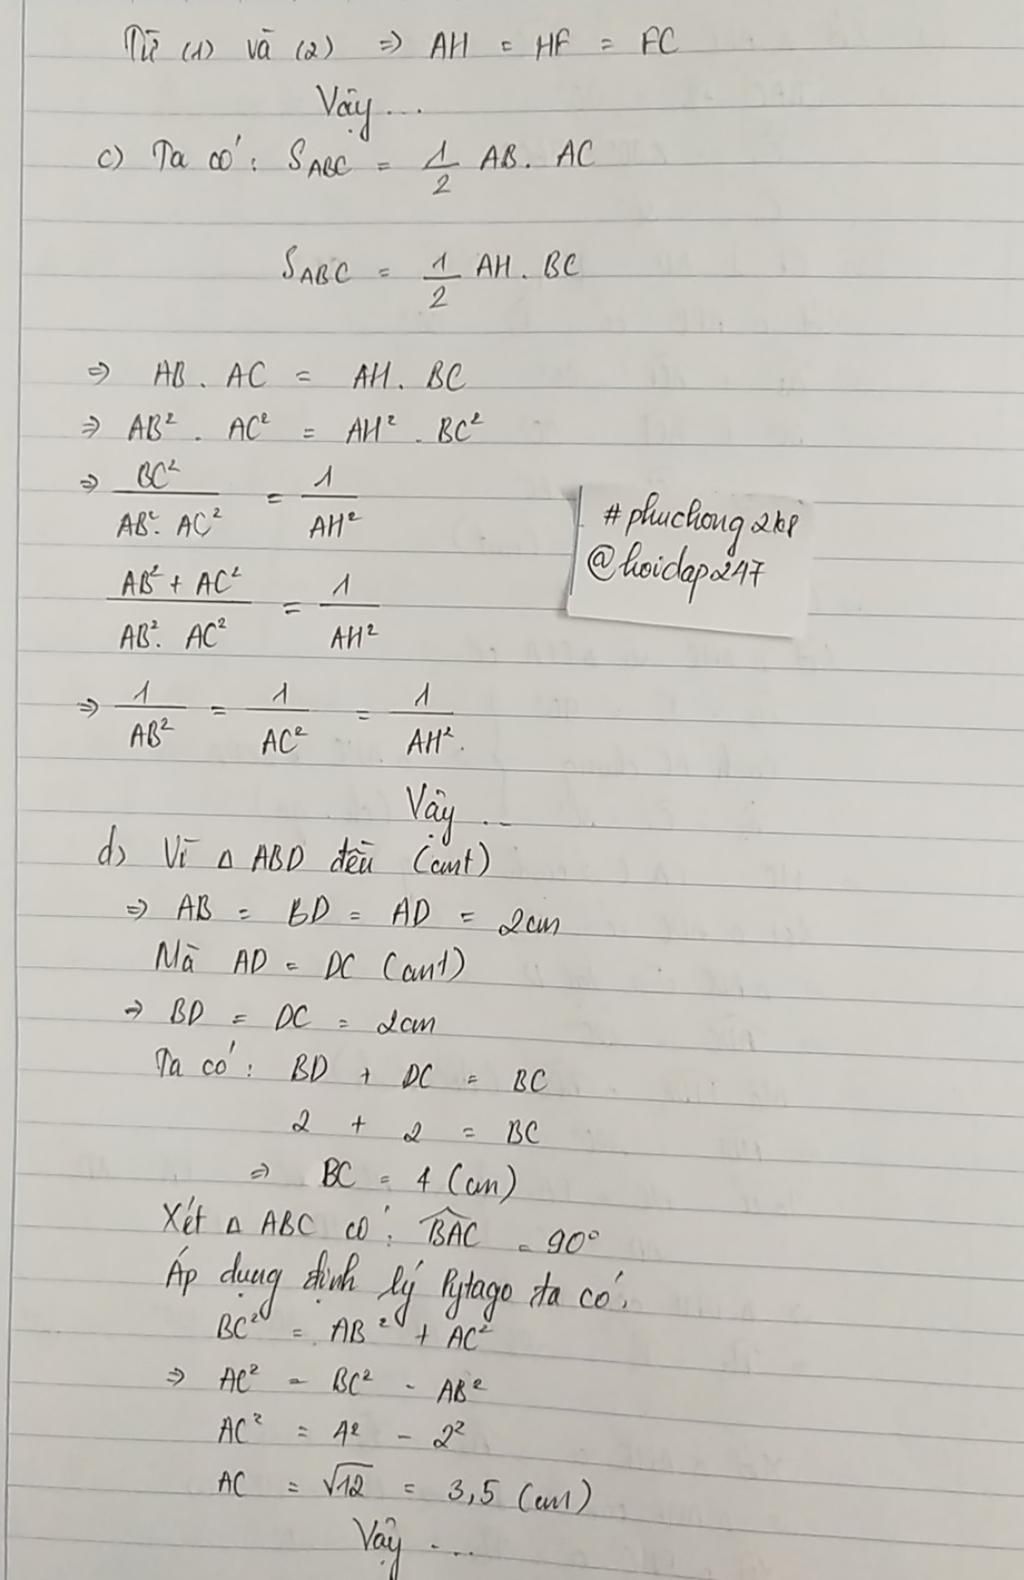 Từ (1) và (2) => AH = HF = FC
Vậy ...
c) Ta có: S_ABC = 1/2 AB. AC
S_ABC = 1/2 AH. BC
=> AB. AC = AH. BC
=> AB². AC² = AH². BC²
=> BC²/(AB². AC²) = 1/AH²
(AB² + AC²)/(AB². AC²) = 1/AH²
=> 1/AB² = 1/AC² = 1/AH².
Vậy ...
#phuchong2k8
@hoidap247
d) Vì △ ABD đều (cmt)
=> AB = BD = AD = 2cm
Mà AD = DC (cmt)
=> BD = DC = 2cm
Ta có: BD + DC = BC
2 + 2 = BC
=> BC = 4 (cm)
Xét △ ABC có: BAC = 90°
Áp dụng định lý Pytago ta có:
BC² = AB² + AC²
=> AC² = BC² - AB²
AC² = 4² - 2²
AC = √12 = 3,5 (cm)
Vậy ....